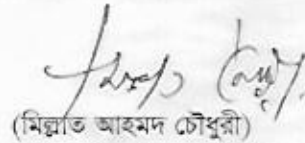 (মিল্লাত আহমদ চৌধুরী)